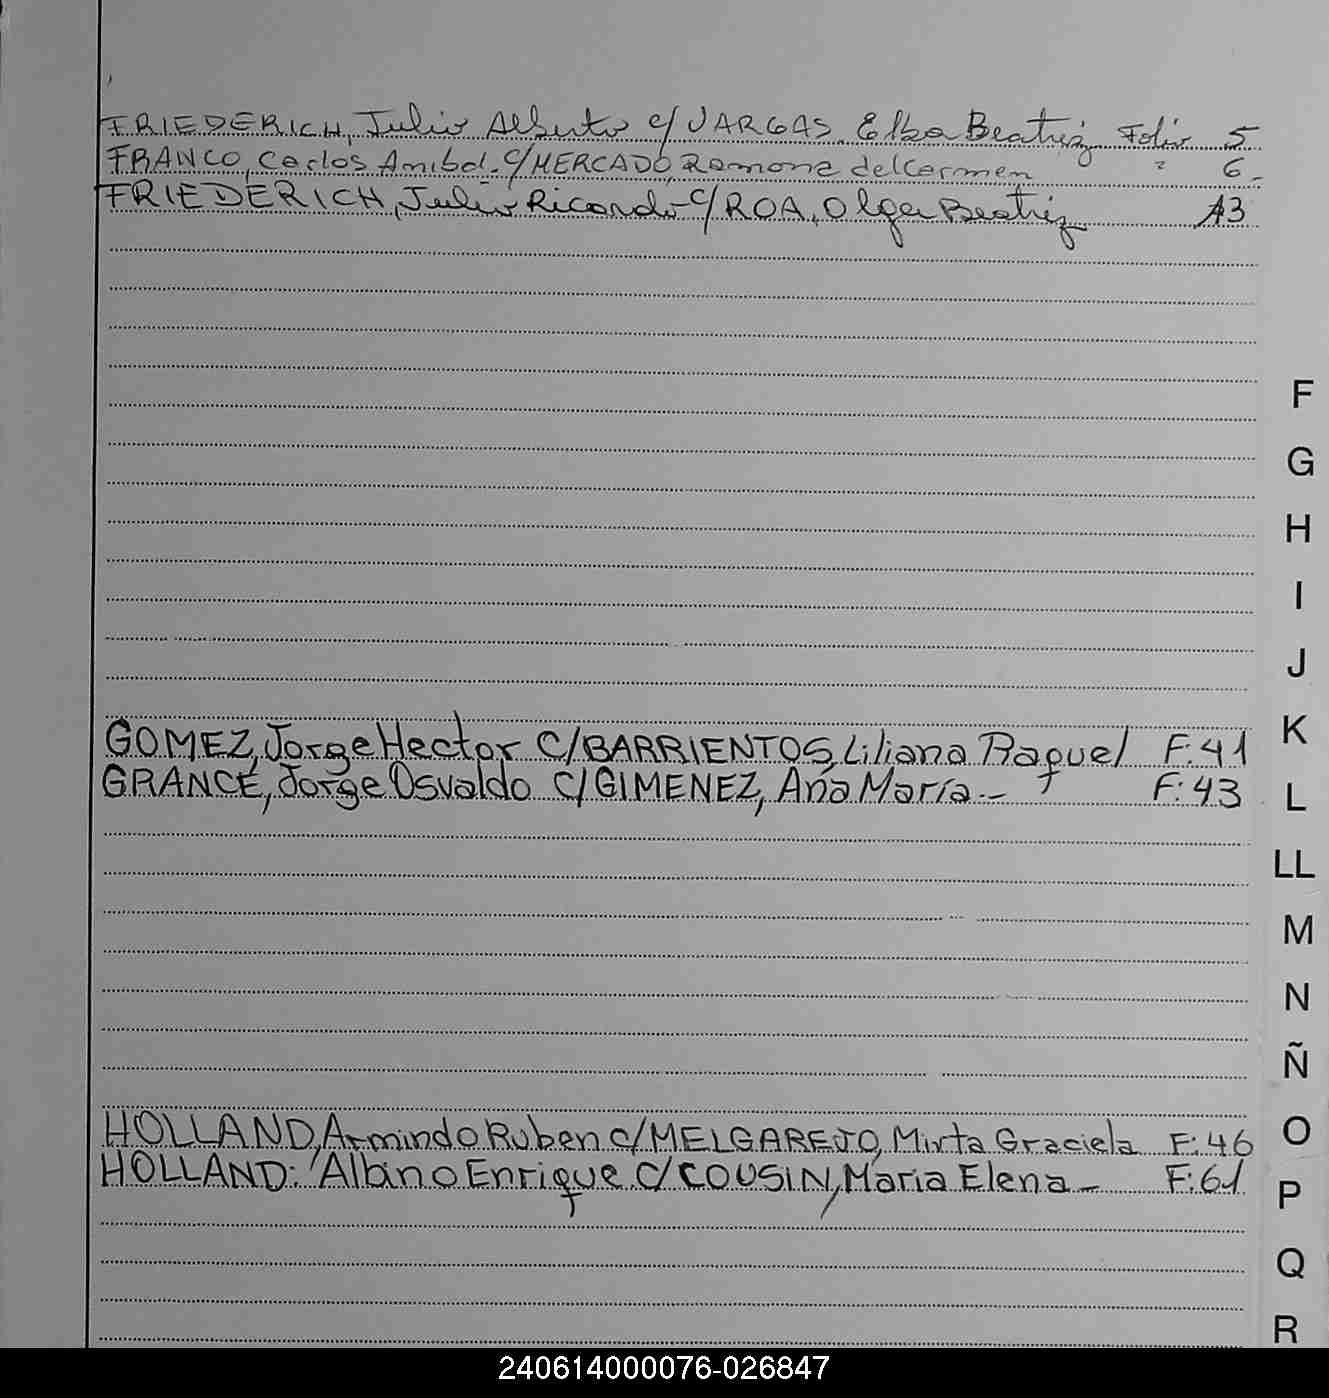 FRIEDERICH, Julio Alberto c/ VARGAS, Elba Beatriz Folio 5
FRANCO, Carlos Anibal. c/ MERCADO, Ramona del Carmen " 6-
FRIEDERICH, Julio Ricardo c/ ROA, Olga Beatriz 13
F
G
H
I
J
K
GOMEZ, Jorge Hector C/BARRIENTOS, Liliana Raquel F:41
GRANCE, Jorge Osvaldo C/GIMENEZ, Ana María.- F:43
L
LL
M
N
Ñ
O
HOLLAND, Armindo Ruben c/MELGAREJO, Mirta Graciela F:46
HOLLAND: Albino Enrique C/COUSIN, María Elena- F:61
P
Q
R
240614000076-026847